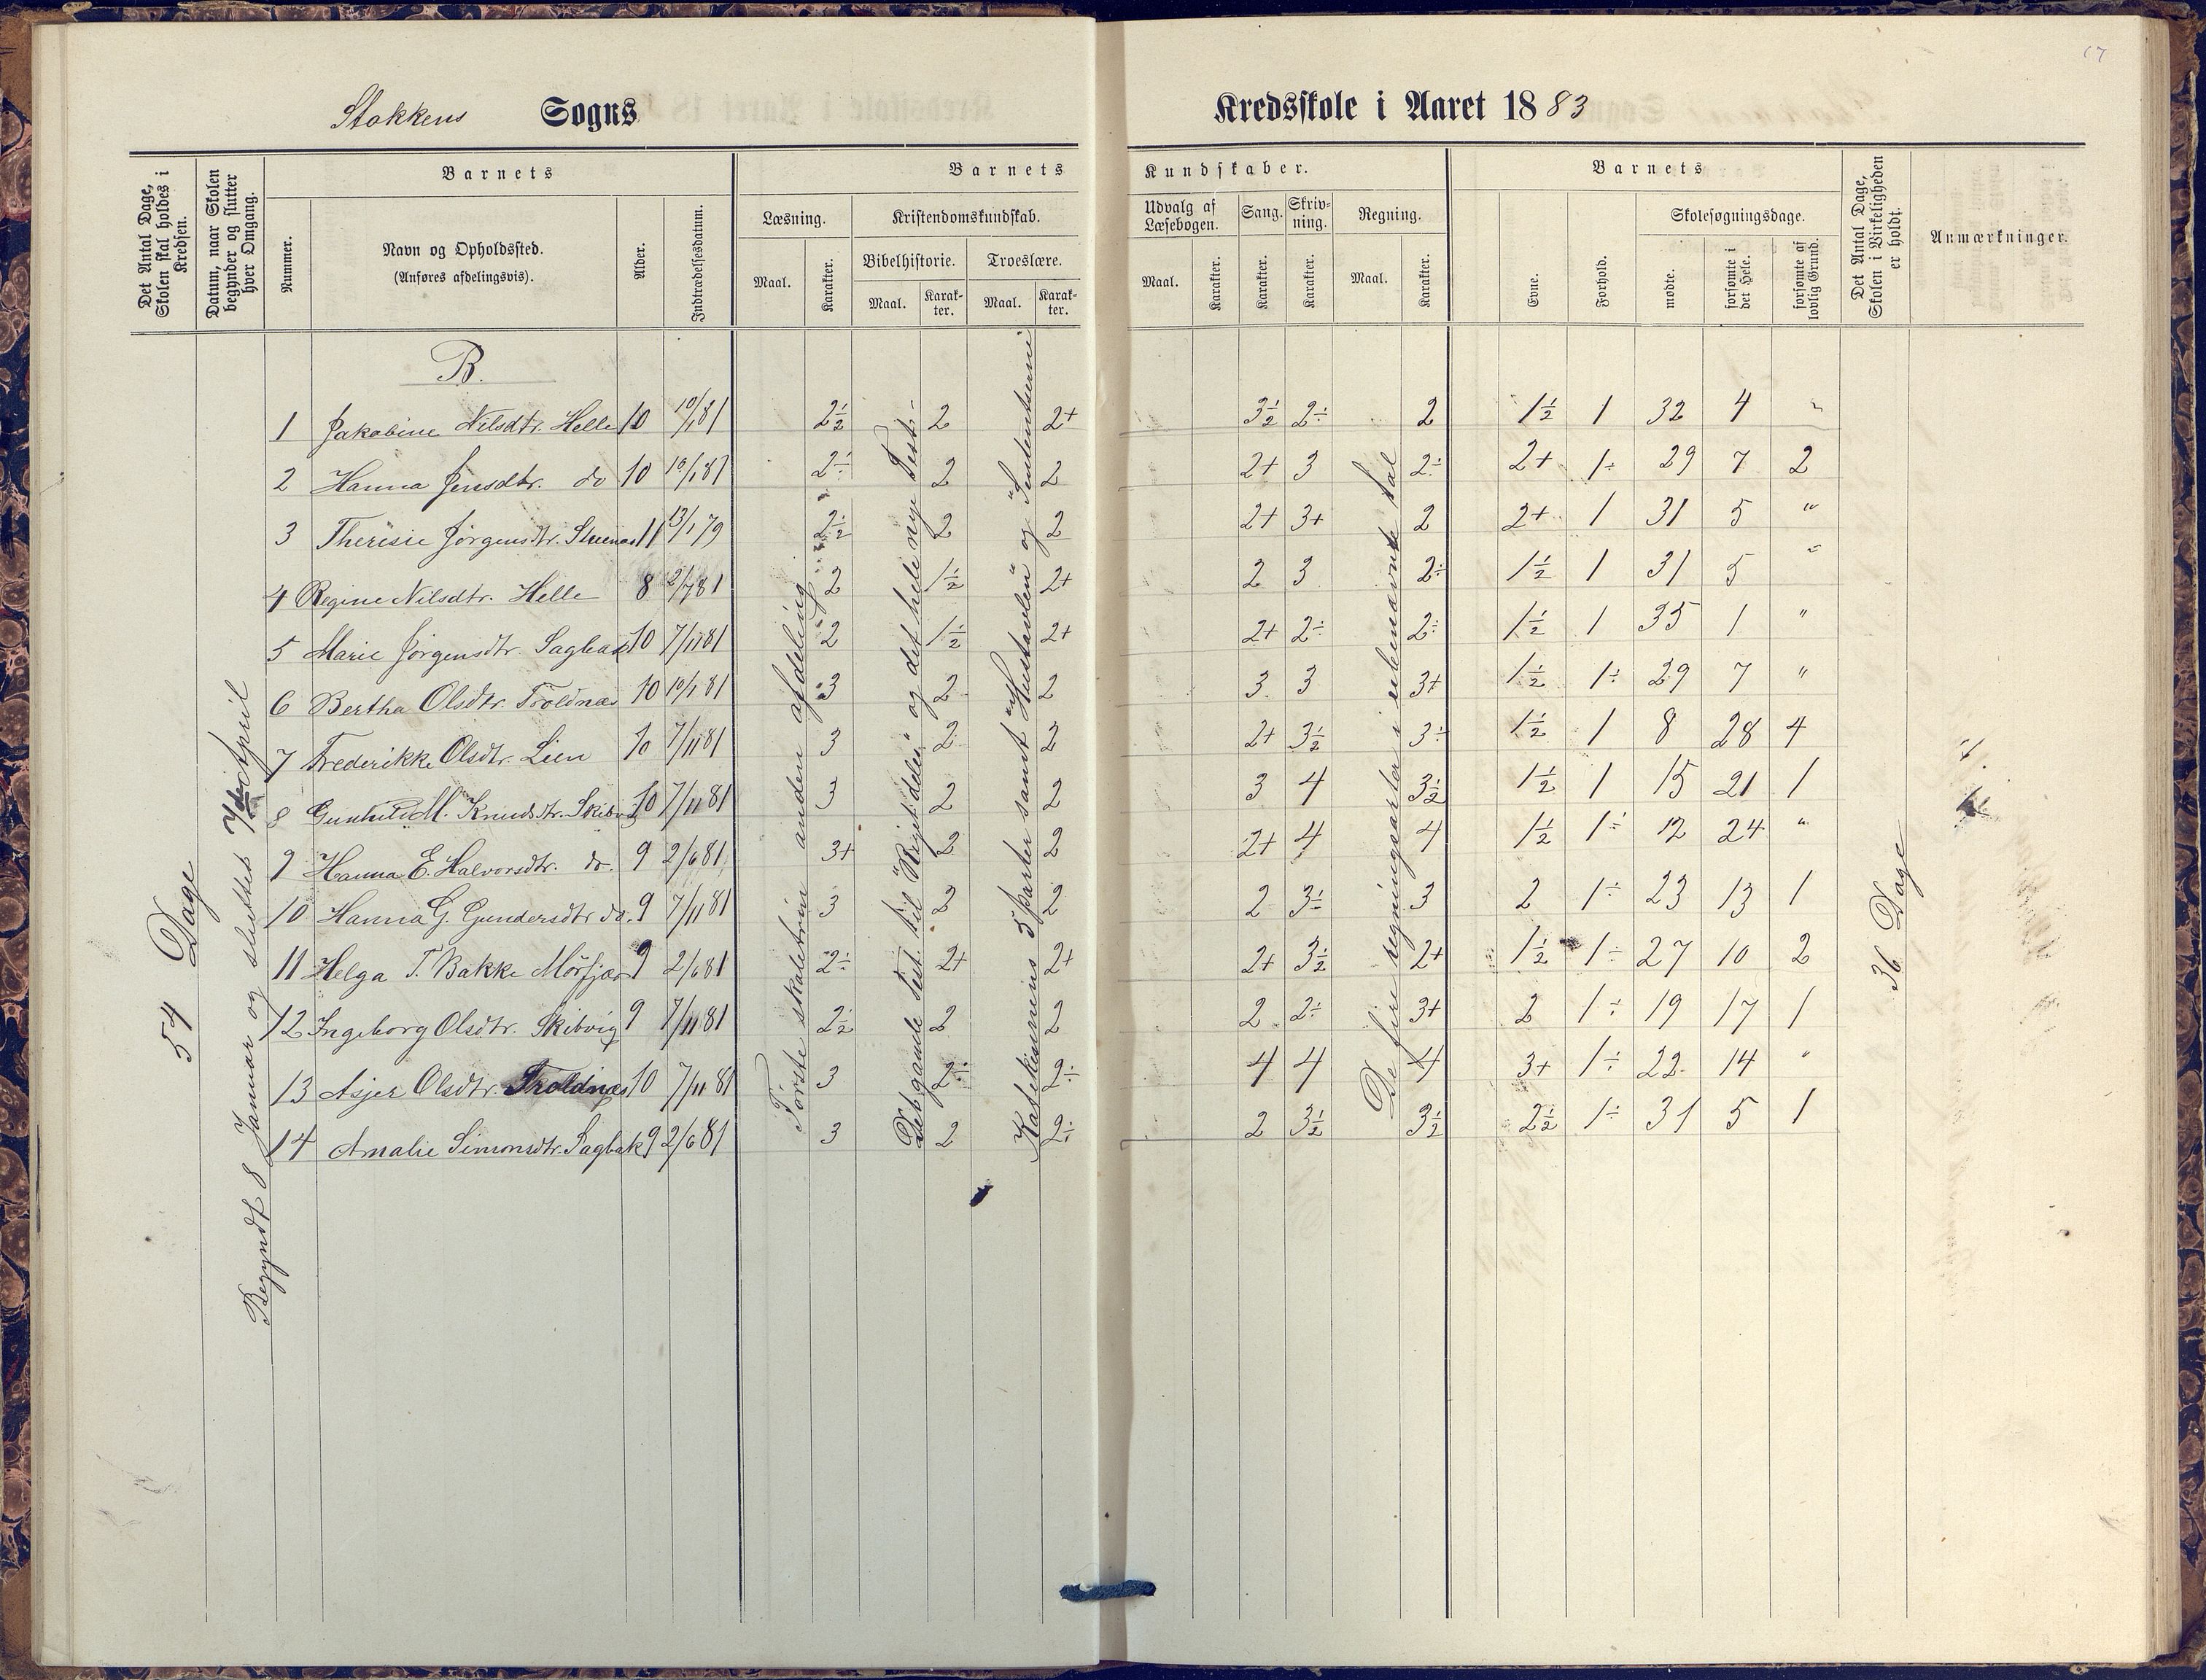 17
Stokkens Sogns Kredsskole i Aaret 1883
Det Antal Dage, Skolen skal holdes i Kredsen.
Datum, naar Skolen begynder og slutter hver Omgang.
Barnets
Nummer.
Navn og Opholdssted.
(Anføres afdelingsvis).
Alder.
Indtrædelsesdatum.
Barnets Kundskaber.
Læsning.
Maal.
Karakter.
Kristendomskundskab.
Bibelhistorie.
Maal.
Karakter.
Troeslære.
Maal.
Karakter.
Udvalg af Læsebogen.
Maal.
Karakter.
Sang.
Karakter.
Skrivning.
Karakter.
Regning.
Maal.
Karakter.
Barnets
Evne.
Forhold.
Skolesøgningsdage.
mødte.
forsømte i det Hele.
forsømte af lovlig Grund.
Det Antal Dage, Skolen i Virkeligheden er holdt.
Anmærkninger.
54 Dage
Begyndt 8 Januar og sluttet 7de April
B.
1 Jakobine Nilsdtr. Helle 10 10/1 81 2½ 2 2+ 3½ 2÷ 2 1½ 1 32 4 "
2 Hanna Jensdtr. do 10 10/1 81 2÷ 2 2 2+ 3 2÷ 2+ 1÷ 29 7 2
3 Theresie Jørgensdtr. 11 13/1 79 2½ 2 2 2+ 3+ 2 2+ 1 31 5 "
4 Regine Nilsdtr. Helle 8 2/7 81 2 1½ 2+ 2 3 2÷ 1½ 1 31 5 "
5 Marie Jørgensdtr. Sagbak 10 7/11 81 2 1½ 2+ 2+ 2÷ 2÷ 1½ 1 35 1 "
6 Bertha Olsdtr. Troldnæs 10 10/1 81 3 2 2 3 3 3+ 1½ 1÷ 29 7 "
7 Frederikke Olsdtr. Lien 10 7/11 81 3 2 2 2+ 3½ 3÷ 1½ 1 8 28 4
8 Gunhild M. Knudsdtr. Skibvig 10 7/11 81 3 2 2 3 4 3½ 1½ 1 15 21 1
9 Hanna E. Halvorsdtr. do. 9 2/6 81 3+ 2 2 2+ 4 4 1½ 1÷ 12 24 "
10 Hanna G. Gundersdtr do. 9 7/11 81 3 2 2 2 3÷ 3 2 1÷ 23 13 1
11 Helga T. Bakke Mörfjær 9 2/6 81 2÷ 2+ 2+ 2+ 3½ 2+ 1½ 1÷ 27 10 2
12 Ingeborg Olsdtr. Skibvig 9 7/11 81 2½ 2 2 2 2÷ 3+ 2 1÷ 19 17 1
13 Asjer Olsdtr. Troldnæs 10 7/11 81 3 2÷ 2÷ 4 4 4 3+ 1÷ 22 14 "
14 Amalie Simonsdtr. Sagbak 9 2/6 81 3 2 2÷ 2 3½ 3½ 2½ 1÷ 31 5 1
Første skoletrin anden afdeling.
Det gamle Test. til "Riget deles" og det hele nye Test.
Katekismens 5 parter samt "Hustavlen" og "Sententserne"
De fire regningsarter i ubenævnte tal
36 Dage